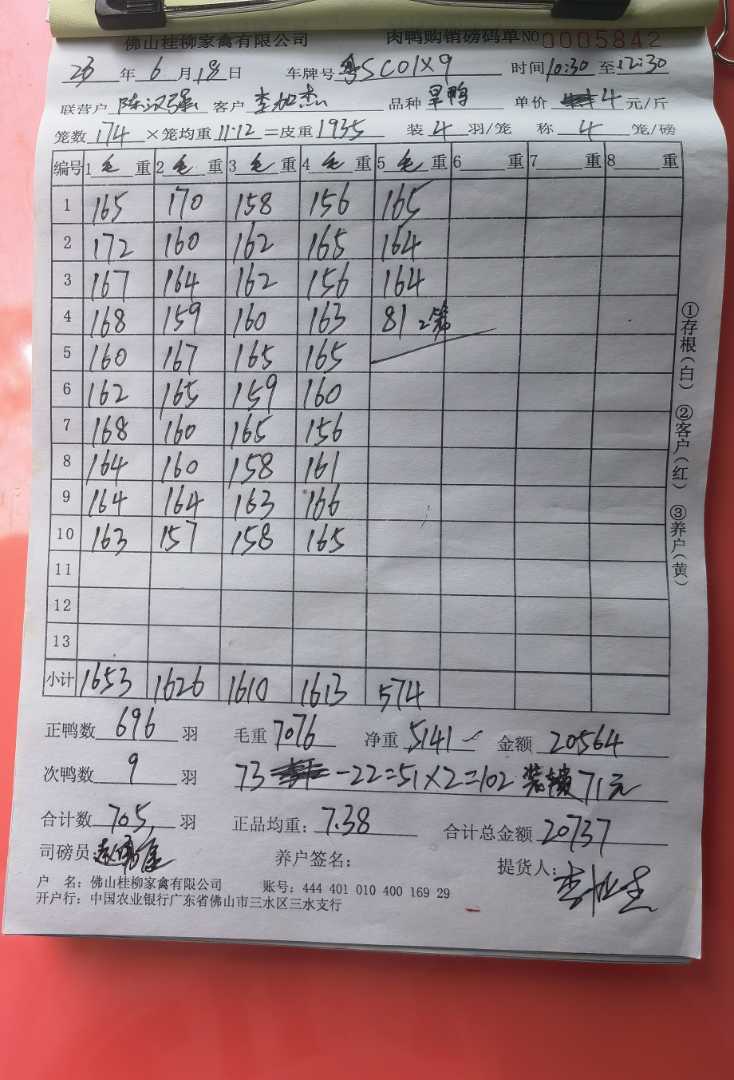 佛山桂柳家禽有限公司 肉鸭购销磅码单 NO 0005842
23 年 6 月 18 日 车牌号 粤SC01X9 时间 10:30 至 12:30
联营户 陈汉强 客户 李加杰 品种 旱鸭 单价 4 元/斤
笼数 174 ×笼均重 11.12 =皮重 1935 装 4 羽/笼 称 4 笼/磅
编号 1 毛 重 2 毛 重 3 毛 重 4 毛 重 5 毛 重 6 重 7 重 8 重
1 165 170 158 156 165
2 172 160 162 165 164
3 167 164 162 156 164
4 168 159 160 163 81 2笼
5 160 167 165 165
6 162 165 159 160
7 168 160 165 156
8 164 160 158 161
9 164 164 163 166
10 163 157 158 165
11
12
13
小计 1653 1626 1610 1613 574
正鸭数 696 羽 毛重 7076 净重 5141 金额 20564
次鸭数 9 羽 73 -22=51×2=102 装 71元
合计数 705 羽 正品均重: 7.38 合计总金额 20737
司磅员 养户签名: 提货人: 李加杰
户 名: 佛山桂柳家禽有限公司 账号: 444 401 010 400 169 29
开户行: 中国农业银行广东省佛山市三水区三水支行
①存根(白) ②客户(红) ③养户(黄)